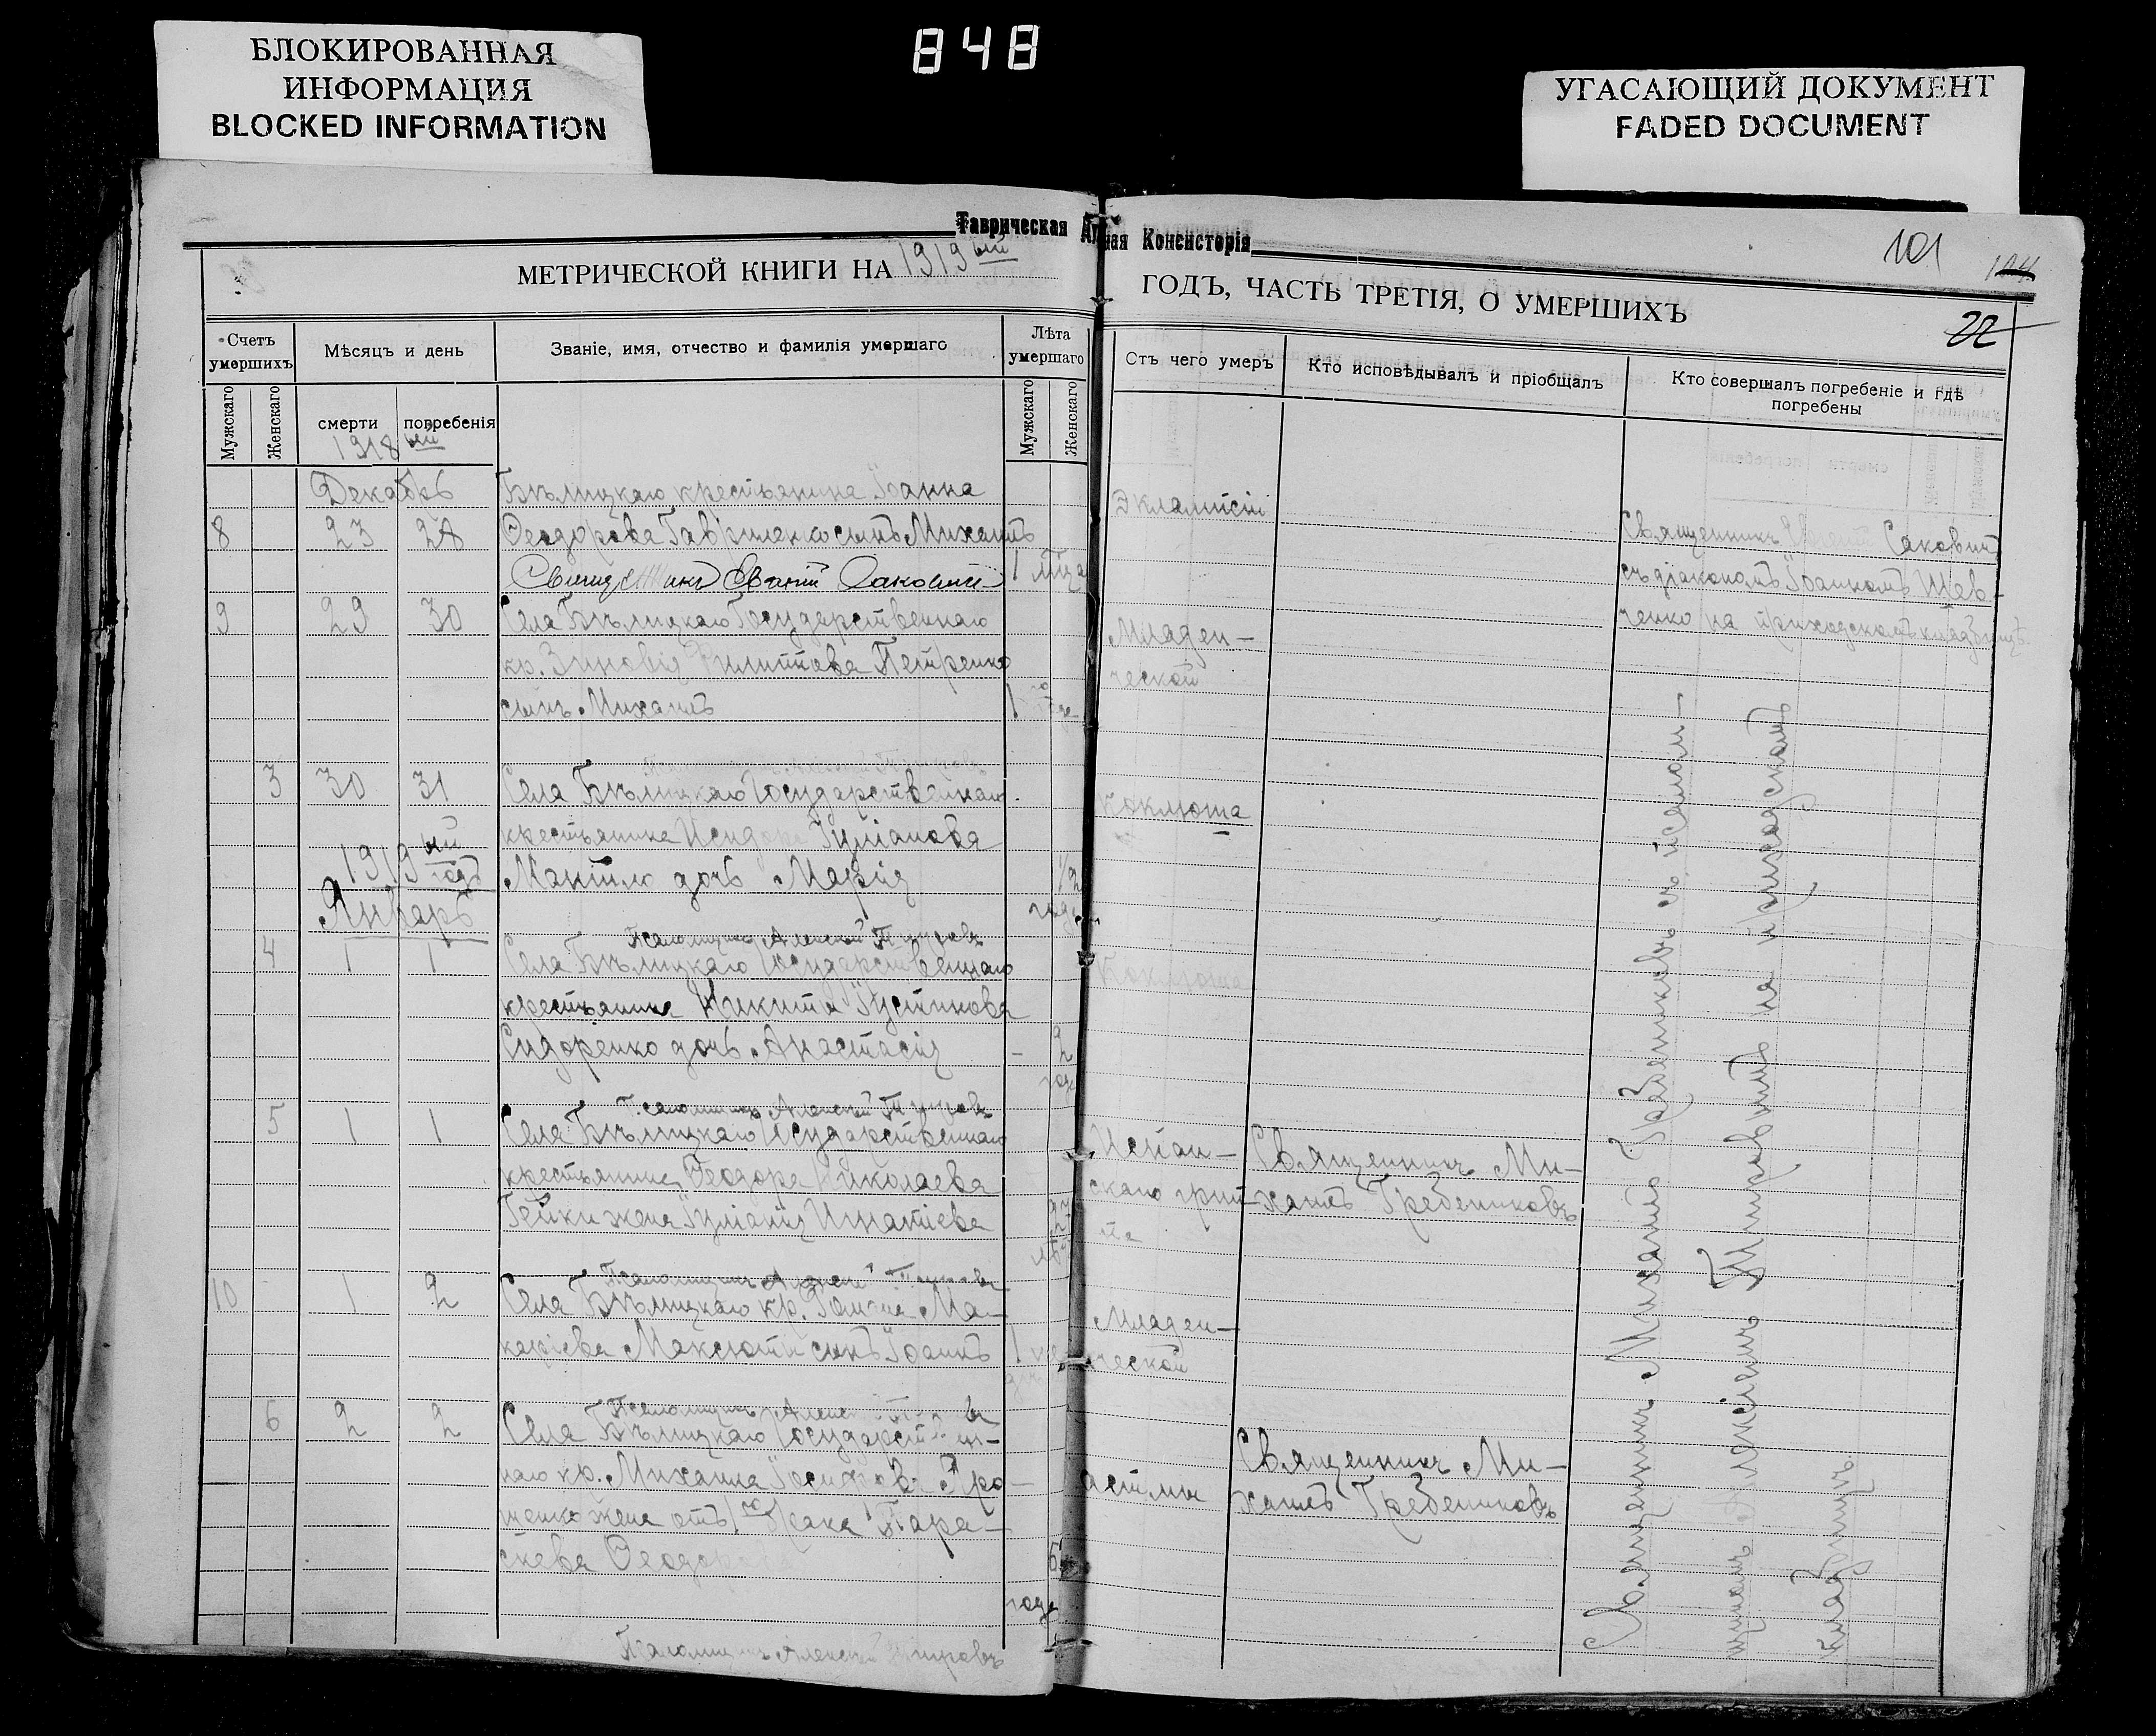 БЛОКИРОВАННАЯ
ИНФОРМАЦИЯ
BLOCKED INFORMATION
848
УГАСАЮЩИЙ ДОКУМЕНТ
FADED DOCUMENT
Таврическая
ная Консисторія
101
22
МЕТРИЧЕСКОЙ КНИГИ НА 1919 ый
ГОДЪ, ЧАСТЬ ТРЕТІЯ, О УМЕРШИХЪ
Счетъ умершихъ
Мужскаго
Женскаго
Мѣсяцъ и день
смерти
погребенія
Званіе, имя, отчество и фамилія умершаго
Лѣта умершаго
Мужскаго
Женскаго
Отъ чего умеръ
Кто исповѣдывалъ и пріобщалъ
Кто совершалъ погребеніе и гдѣ
погребены
1918 ый
Декабрь
Бѣлицкаго крестьянина Іоанна
8 23 28 Ѳеодорова Гавриленко сынъ Михаилъ
1
Эклампсіи
Священникъ Сакович
съ діакономъ Іоанномъ Шев-
ченко на приходскомъ кладбищѣ
9 29 30 Села Бѣлицкаго Государственнаго
кр. Зиновія Филиппова Петренко
сынъ Михаилъ
1
Младен-
ческой
3 30 31 Села Бѣлицкаго Государственнаго
крестьянина Исидора Іуліанова
Мантило дочь Марія
1/2
года
Коклюша
1919 ый годъ
Январь
Псаломщикъ Алексій
4 1 1 Села Бѣлицкаго Государственнаго
крестьянина Никиты Іустинова
Сидоренко дочь Анастасія
2
года
Коклюша
Псаломщикъ Алексій
5 1 1 Села Бѣлицкаго Государственнаго
крестьянина Ѳеодора Николаева
Гейки жена Іуліанія Игнатіева
27
лѣтъ
Испан-
скаго грип-
па
Священникъ Ми-
хаилъ Гребениковъ
Псаломщикъ Алексій
10 1 2 Села Бѣлицкаго кр. Ма-
каріева Максюты сынъ Іоаннъ
1
Младен-
ческой
Псаломщикъ Алексій
6 2 2 Села Бѣлицкаго Государствен-
наго кр. Михаила Іосифова Яро-
шенко жена отъ 1го брака Пара-
скева Ѳеодорова
года
астмы
Священникъ Ми-
хаилъ Гребениковъ
Псаломщикъ Алексій
Священникъ Михаилъ Гребениковъ съ псалом-
щикомъ Алексіемъ на приходскомъ
кладбищѣ